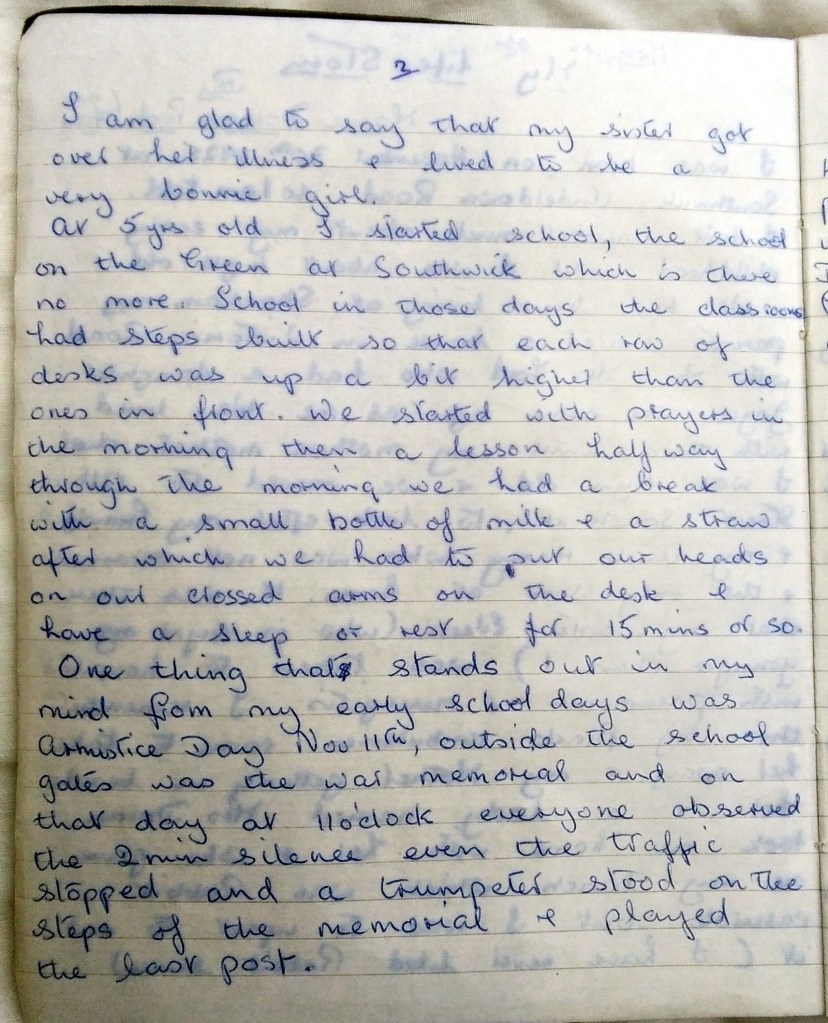 3
I am glad to say that my sister got
over her illness & lived to be a
very bonnie girl.
At 5 yrs old I started school, the school
on the Green at Southwick which is there
no more. School in those days the classrooms
had steps built so that each row of
desks was up a bit higher than the
ones in front. We started with prayers in
the morning then a lesson half way
through the morning we had a break
with a small bottle of milk & a straw
after which we had to put our heads
on our crossed arms on the desk &
have a sleep or rest for 15 mins or so.
One thing that stands out in my
mind from my early school days was
Armistice Day Nov 11th, outside the school
gates was the war memorial and on
that day at 11o'clock everyone observed
the 2 min silence even the traffic
stopped and a trumpeter stood on the
steps of the memorial & played
the last post.